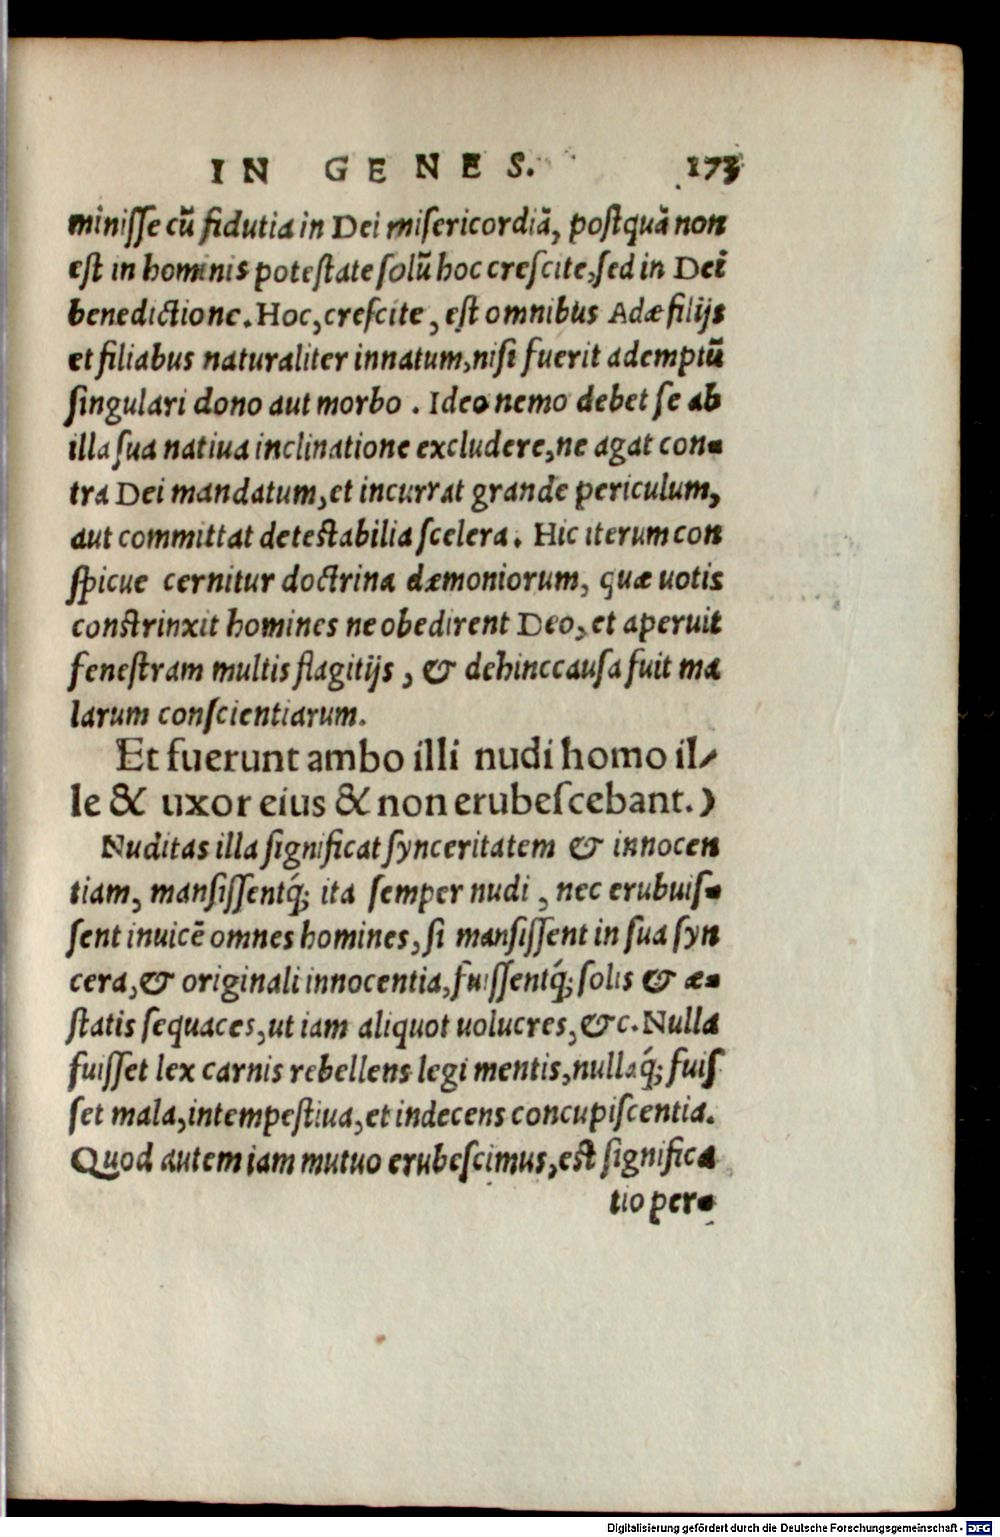 IN GENES. 173
miniſſe cũ fidutia in Dei miſericordiã, poſtquã non
est in hominis poteſtate ſolũ hoc creſcite, ſed in Dei
benedictione. Hoc, creſcite, eſt omnibus Adæ filijs
et filiabus naturaliter innatum, niſi fuerit ademptũ
ſingulari dono aut morbo. Ideo nemo debet ſe ab
illa ſua natiua inclinatione excludere, ne agat con-
tra Dei mandatum, et incurrat grande periculum,
aut committat detestabilia ſcelera. Hic iterum con
ſpicue cernitur doctrina dæmoniorum, quæ uotis
constrinxit homines ne obedirent Deo, et aperuit
feneſtram multis flagitijs, & dehinc cauſa fuit ma
larum conſcientiarum.
Et fuerunt ambo illi nudi homo il-
le & uxor eius & non erubeſcebant.)
Nuditas illa ſignificat ſynceritatem & innocen
tiam, manſiſſentq́; ita ſemper nudi, nec erubuiſ-
ſent inuicẽ omnes homines, ſi manſiſſent in ſua ſyn
cera, & originali innocentia, fuiſſentq́; ſolis & æ-
ſtatis ſequaces, ut iam aliquot uolucres, &c. Nulla
fuiſſet lex carnis rebellens legi mentis, nullaq́; fuiſ
ſet mala, intempeſtiua, et indecens concupiſcentia.
Quod autem iam mutuo erubeſcimus, est ſignifica
tio per-
Digitalisierung gefördert durch die Deutsche Forschungsgemeinschaft - DFG